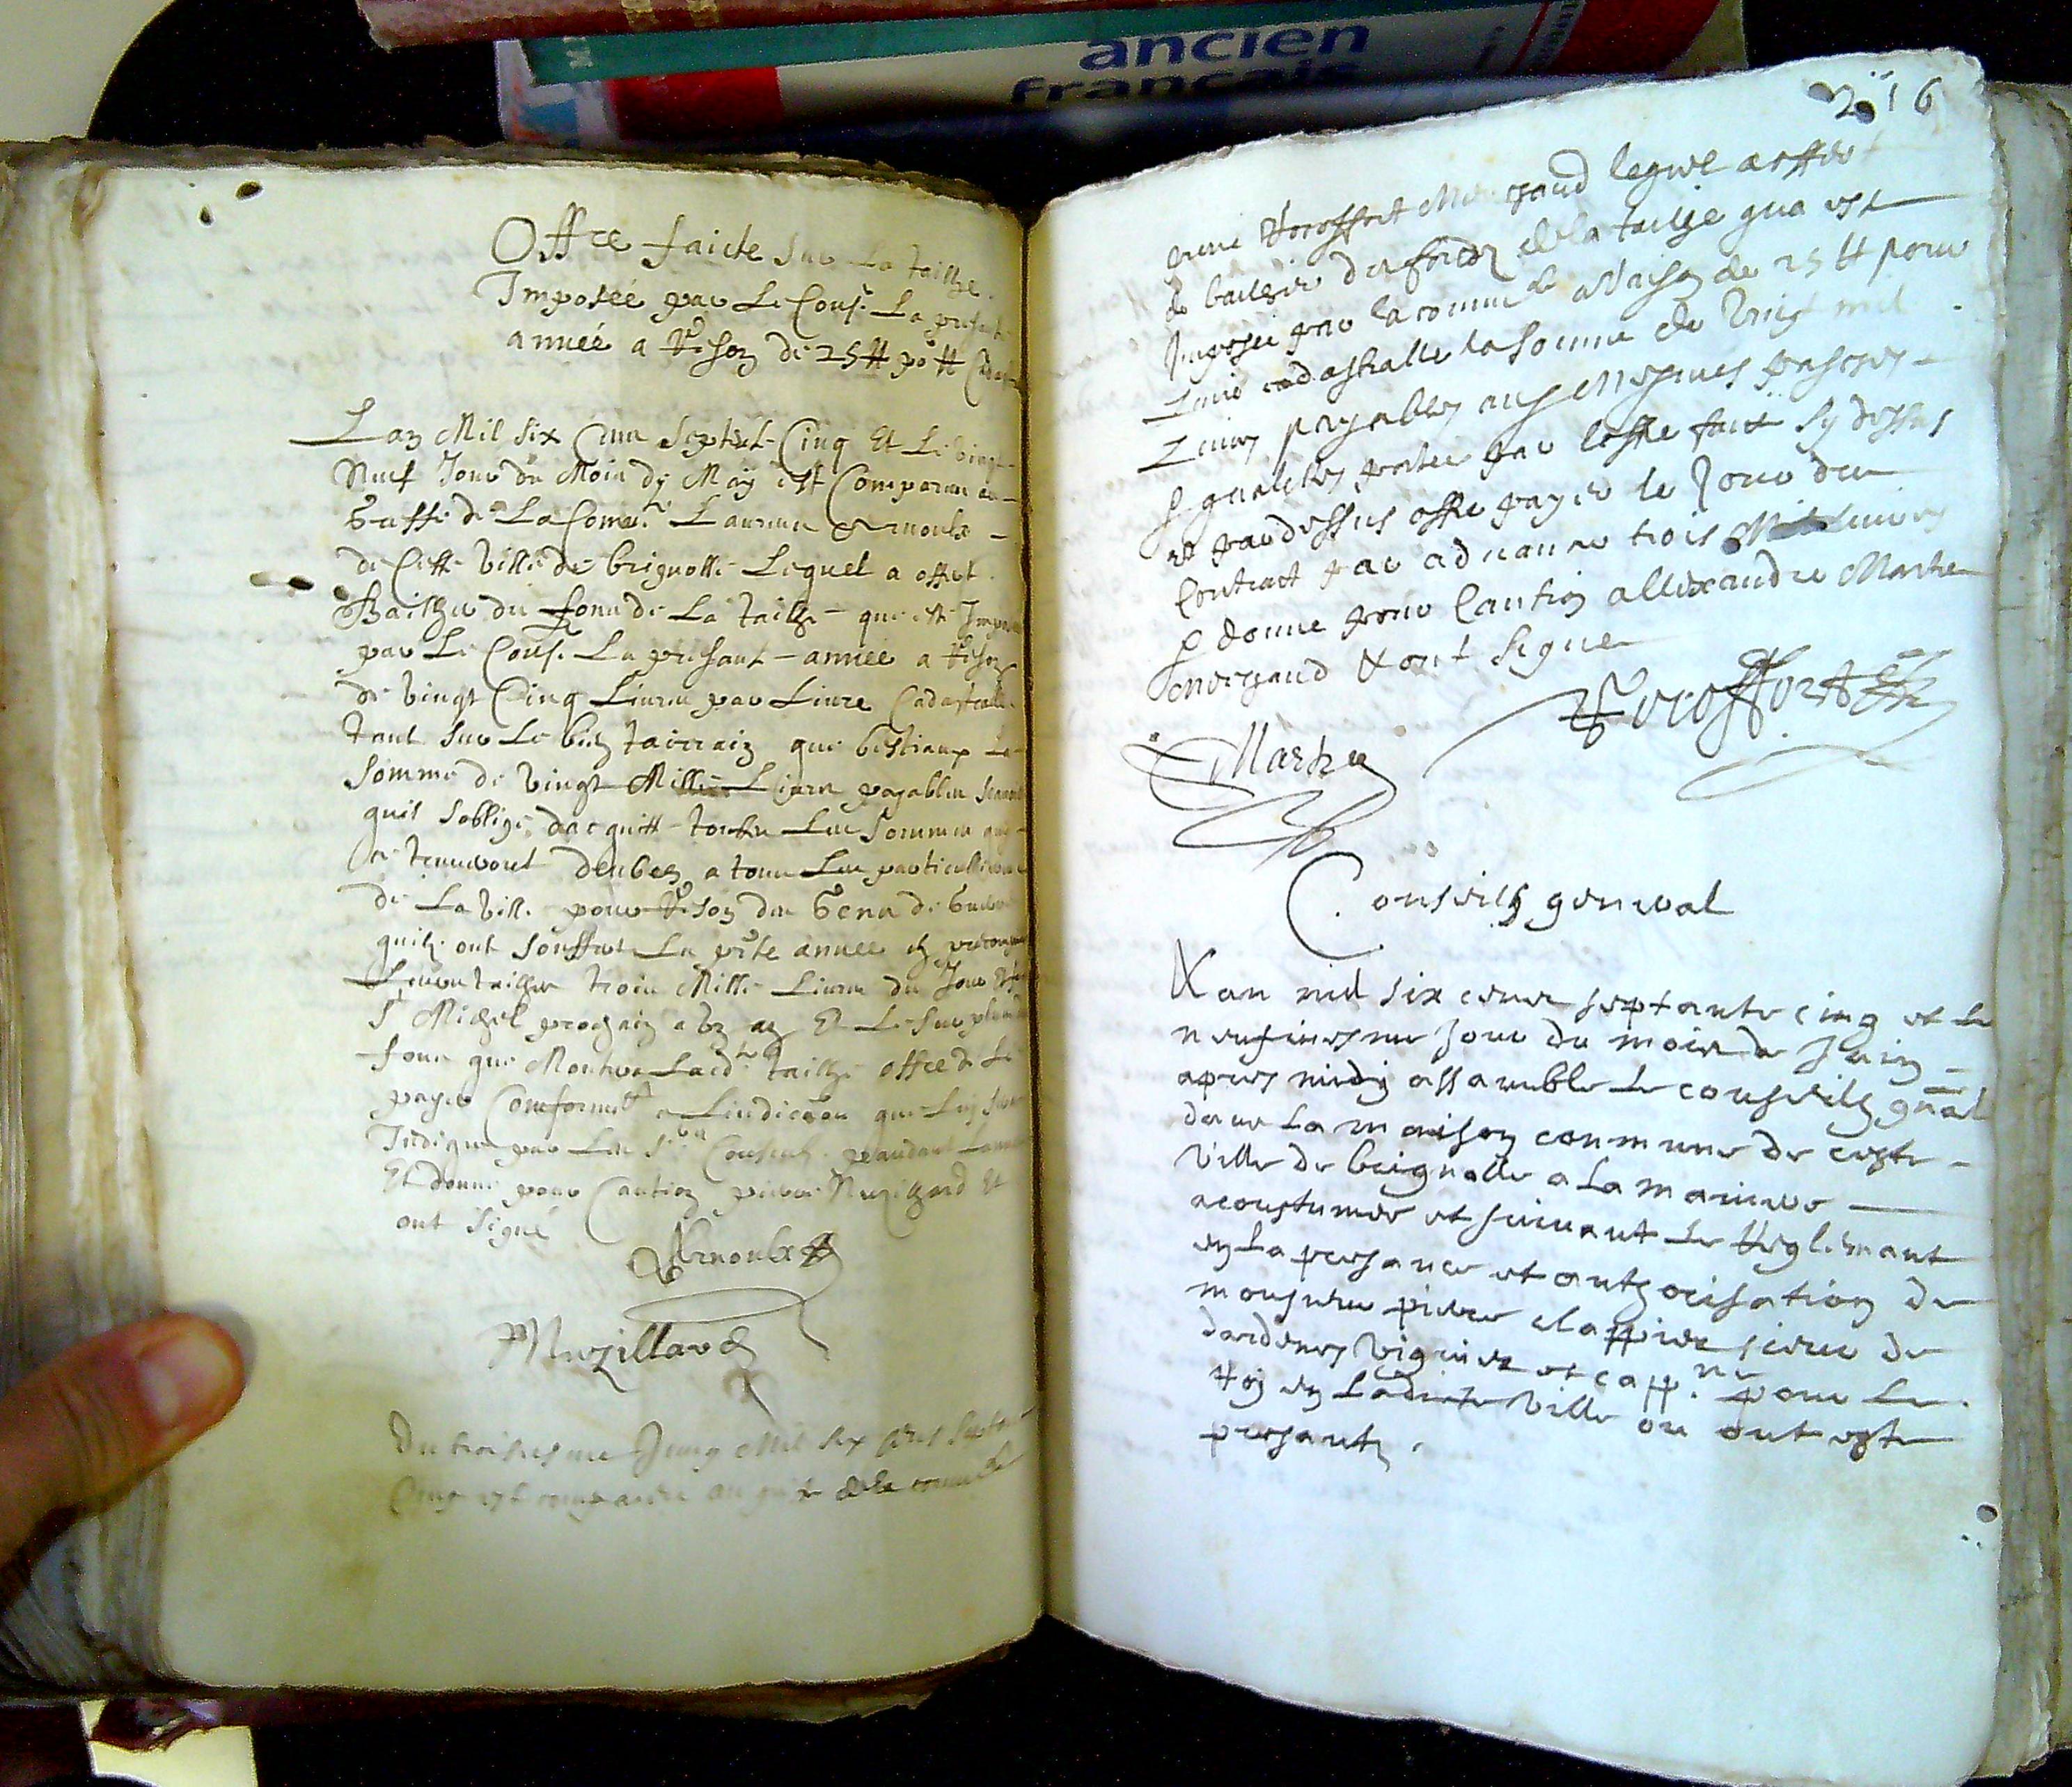 ancien
français
Offre faicte sur la taillhe
Imposée par le Cons.l la presente
année a Reson de 25 ₶ po ₶ Cadas
Lan Mil six Cens Septante Cinq Et le vingt
Neuf Jour du Mois dy May est Compareu au
Greffe de La Com.te Laurens Arnoulx
de Ceste Ville de brignolle Lequel a offert
Bailher du fons de La tailhe que est Impozee
par Le Cons.l La presant année a Reson
de vingt Cinq Liures par Liure Cadastralle
tant sur Le bien tairrain que bestiaux La
somme de vingt Mille Liures payables scauoir
quil soblige dacquitter toutes Les sommes qui
se trouueront deubes a tous Les particulliers
de La Ville pour Reson des Gens de Guerre
quilz ont souffert La pnte année
trois Mille Liures du Jour
St Michel prochain a un an Et Le surplus du
fons que Montera Lad.te tailhe offre de Le
payer Conformemt a Lindication que Luy sera
Indiquee par Les Srs Consuls pandant Lannee
Et donne pour Caution pierre Muzilhard Et
ont signé
Arnoulx
Muzillard
Du troisiesme Jung Mil six cens septante
Cinq est comparu au greffe de la commté
216
Rocoffort lequel a offert
de bailher des fondz de la tailhe qua este
Imposee par la commté a raison de 25 ₶ pour
Liure cadastralle la somme de vingt mil
Liures payables aux mesmes
qualites portee par loffre fait sy dessus
et par dessus offre payer le Jour du
contract par aduance trois Mil Liures
donne pour Caution allexandre Marhe
& ont signe
Rocoffort
Marhe
Conseilh general
L an mil six cens septante cinq et le
neufiuesme jour du mois de juin
apres midy assamble le conseilh gnal
dans La maison commune de ceste
Ville de brignolle a La maniere
acoustumee et suiuant le Reglemant
en La presance et authorisation de
monsieur pierre clappier sieur de
dardenes Viguier et capp.ne pour Le
Roy en Ladite Ville ou ont este
presants